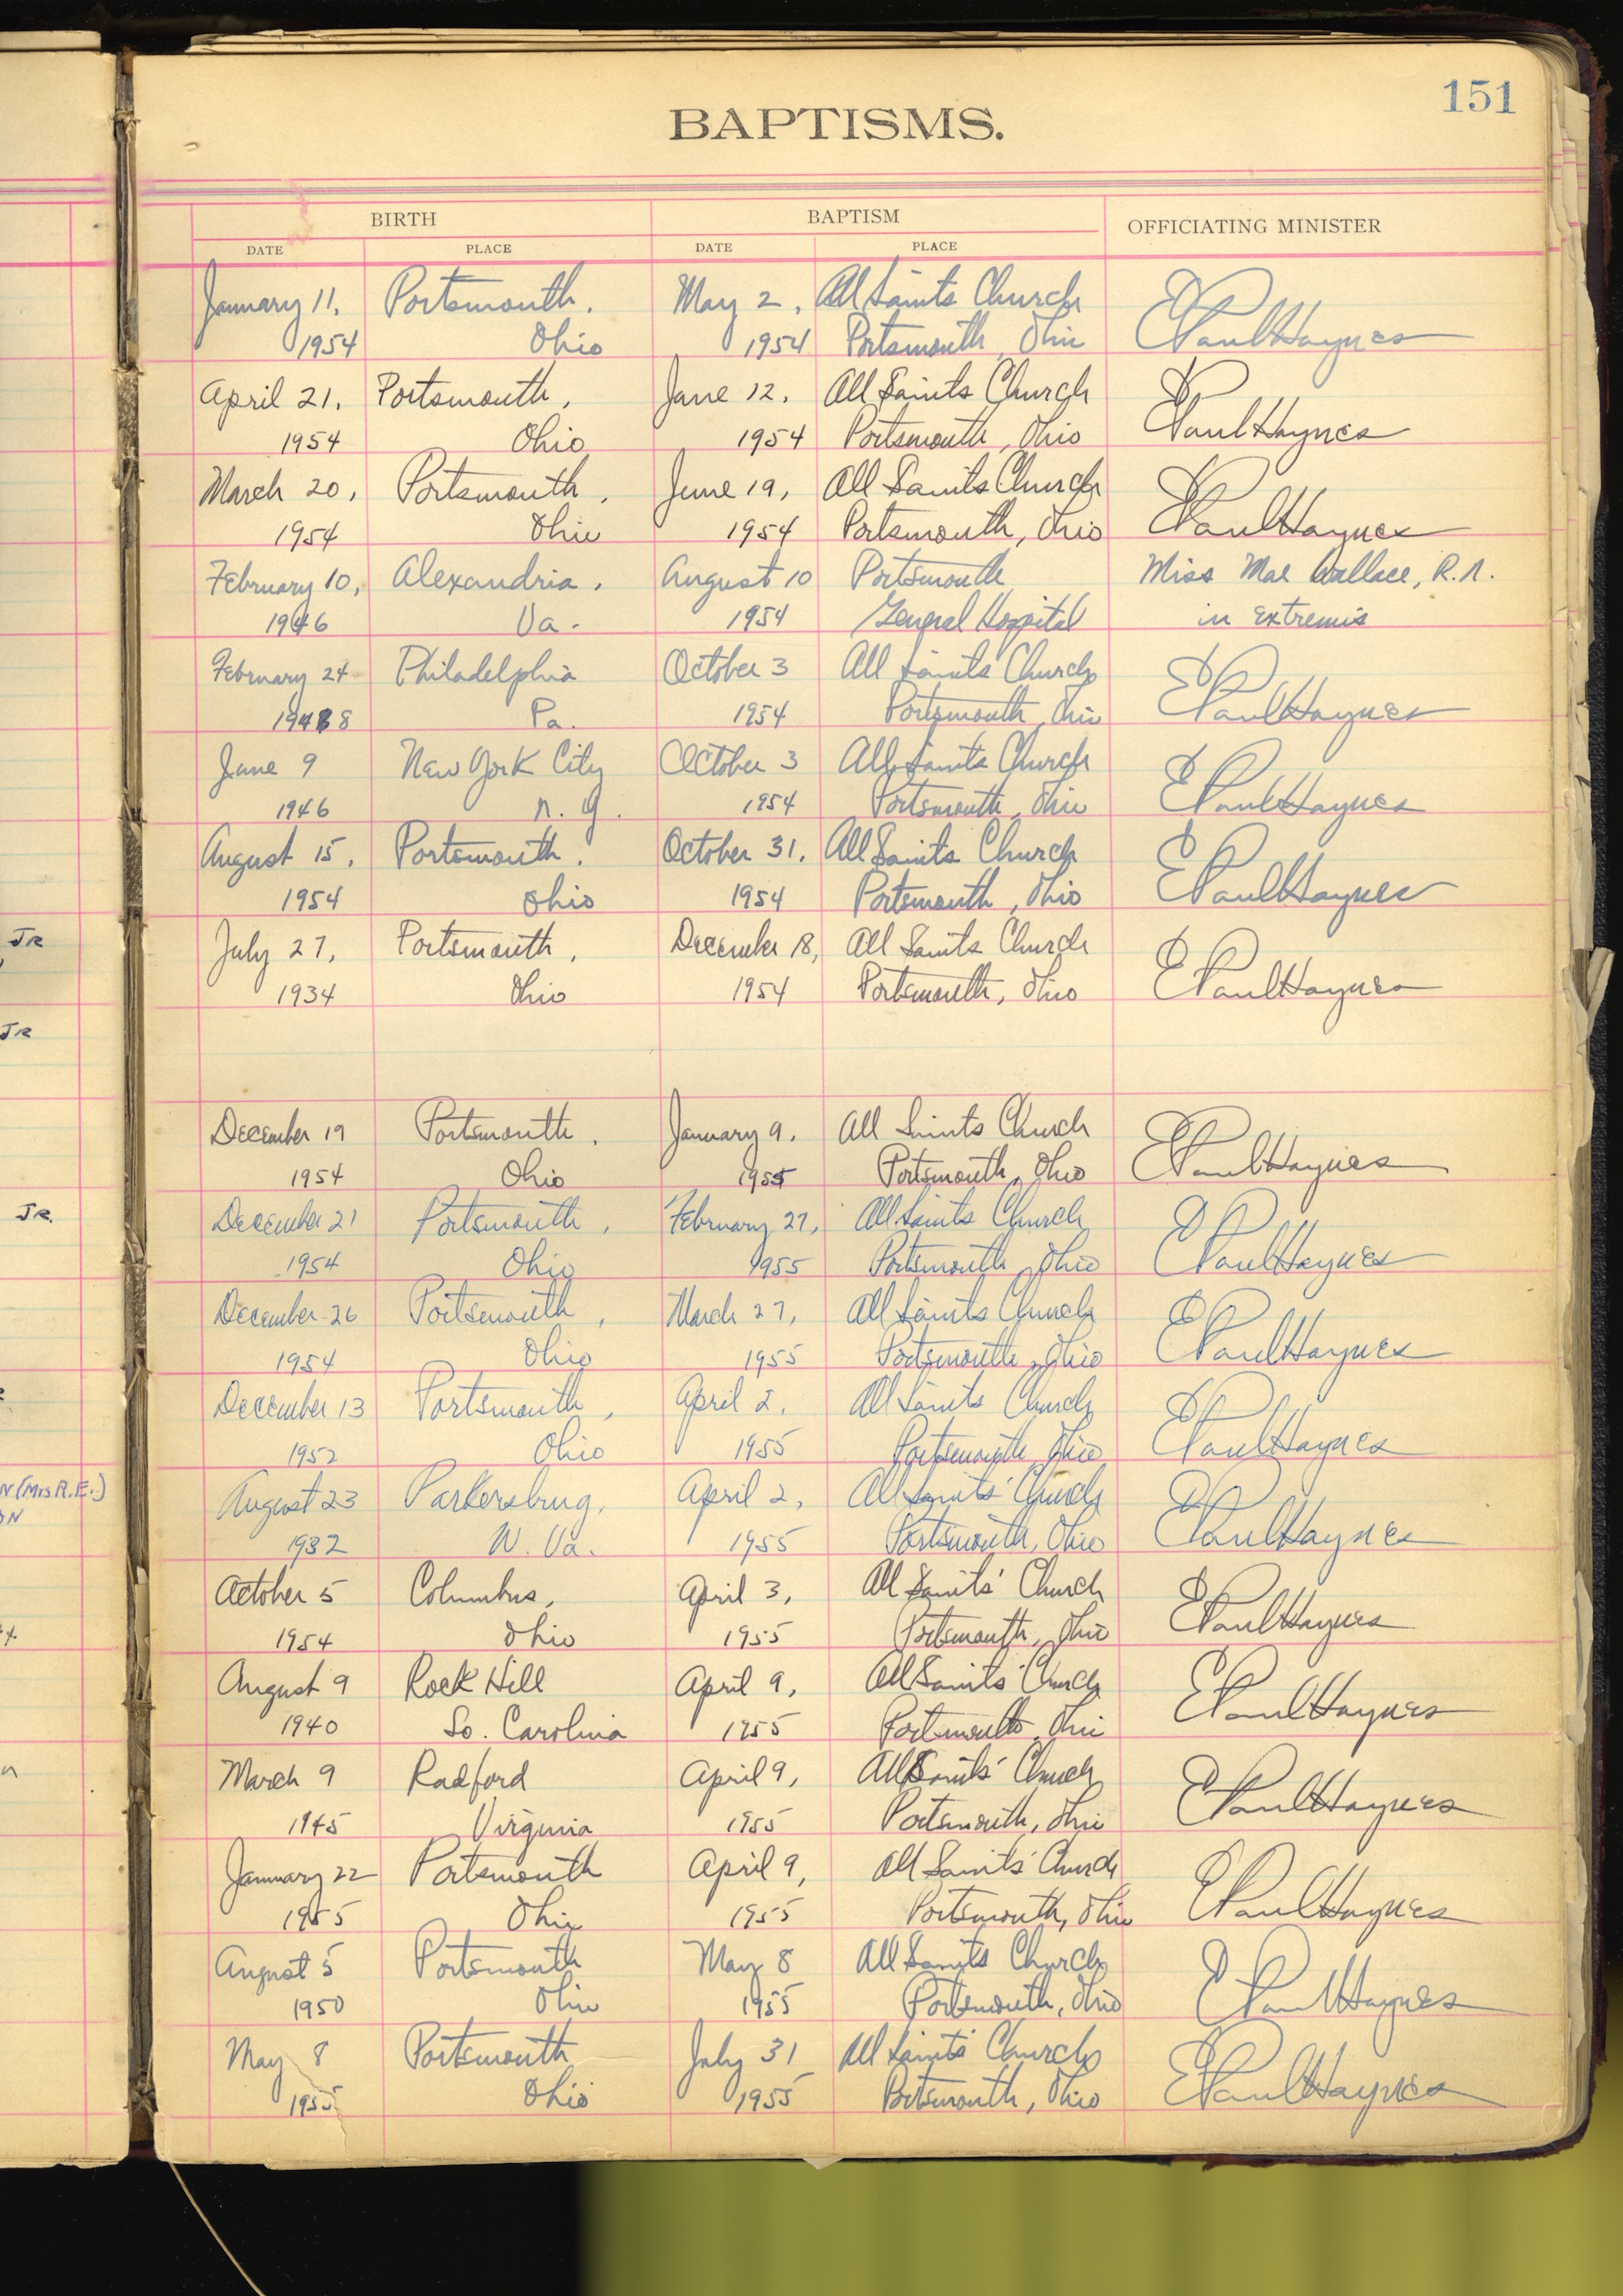 151
BAPTISMS.
BIRTH BAPTISM OFFICIATING MINISTER
DATE PLACE DATE PLACE
January 11, Portsmouth, May 2, All Saints Church
1954 Ohio 1954 Portsmouth, Ohio E Paul Haynes
April 21, Portsmouth, June 12, All Saints Church
1954 Ohio 1954 Portsmouth, Ohio E Paul Haynes
March 20, Portsmouth, June 19, All Saints Church
1954 Ohio 1954 Portsmouth, Ohio E Paul Haynes
February 10, Alexandria, August 10 Portsmouth Miss Mae Wallace, R.N.
1946 Va. 1954 General Hospital in extremis
February 24 Philadelphia October 3 All Saints Church
1948 Pa. 1954 Portsmouth, Ohio E Paul Haynes
June 9 New York City October 3 All Saints Church
1946 N. Y. 1954 Portsmouth, Ohio E Paul Haynes
August 15, Portsmouth, October 31, All Saints Church
1954 Ohio 1954 Portsmouth, Ohio E Paul Haynes
JR July 27, Portsmouth, December 18, All Saints Church
1934 Ohio 1954 Portsmouth, Ohio E Paul Haynes
JR
December 19 Portsmouth, January 9, All Saints Church
1954 Ohio 1955 Portsmouth, Ohio E Paul Haynes
JR. December 21 Portsmouth, February 27, All Saints Church
1954 Ohio 1955 Portsmouth, Ohio E Paul Haynes
December 26 Portsmouth, March 27, All Saints Church
1954 Ohio 1955 Portsmouth, Ohio E Paul Haynes
December 13 Portsmouth, April 2, All Saints Church
1952 Ohio 1955 Portsmouth, Ohio E Paul Haynes
N (Mrs R.E.) August 23 Parkersburg, April 2, All Saints' Church
ON 1932 W. Va. 1955 Portsmouth, Ohio E Paul Haynes
October 5 Columbus, April 3, All Saints' Church
1954 Ohio 1955 Portsmouth, Ohio E Paul Haynes
August 9 Rock Hill April 9, All Saints' Church
1940 So. Carolina 1955 Portsmouth, Ohio E Paul Haynes
March 9 Radford April 9, All Saints' Church
1945 Virginia 1955 Portsmouth, Ohio E Paul Haynes
January 22 Portsmouth April 9, All Saints' Church
1955 Ohio 1955 Portsmouth, Ohio E Paul Haynes
August 5 Portsmouth May 8 All Saints Church
1950 Ohio 1955 Portsmouth, Ohio E Paul Haynes
May 8 Portsmouth July 31 All Saints' Church
1955 Ohio 1955 Portsmouth, Ohio E Paul Haynes